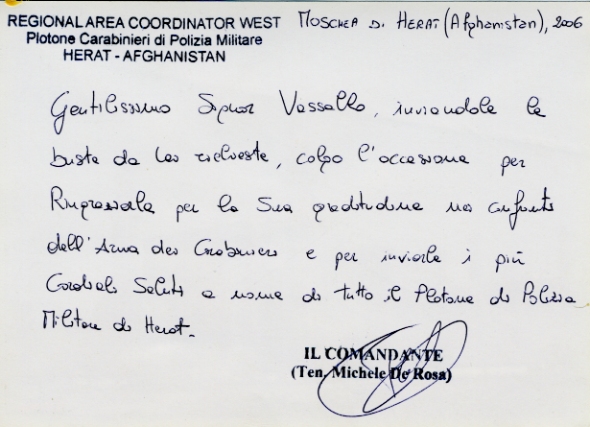 REGIONAL AREA COORDINATOR WEST
Plotone Carabinieri di Polizia Militare
HERAT - AFGHANISTAN
MOSCHEA DI HERAT (Afghanistan), 2006
Gentilissimo Signor Vassallo, inviandole le
buste da Lei richieste, colgo l'occasione per
Ringraziarla per la Sua gratitudine nei confronti
dell'Arma dei Carabinieri e per inviarle i più
Cordiali Saluti a nome di tutto il Plotone di Polizia
Militare di Herat.
IL COMANDANTE
(Ten. Michele De Rosa)